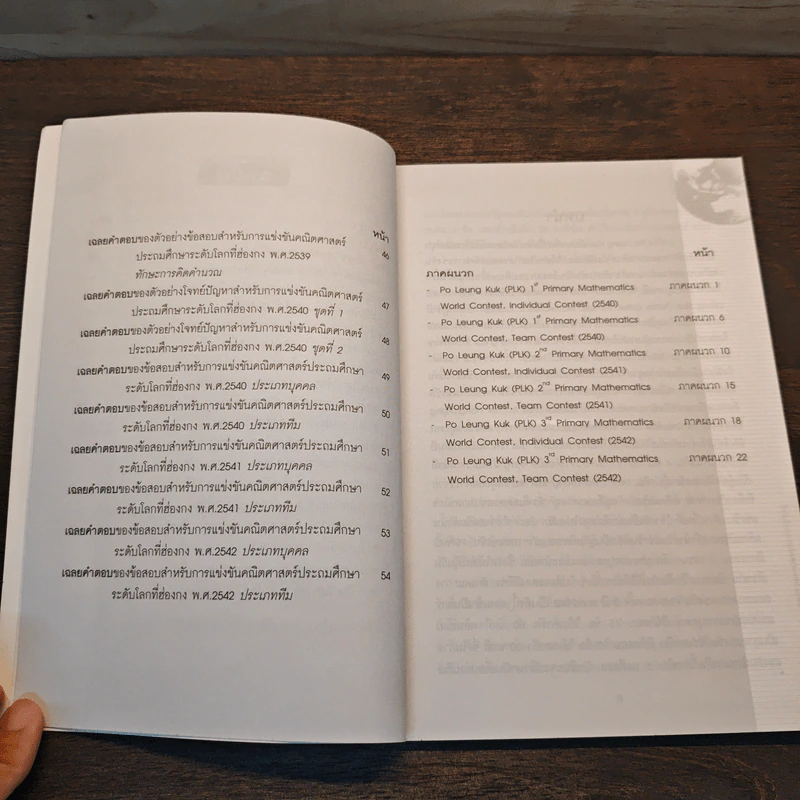 หน้า
เฉลยคำตอบของตัวอย่างข้อสอบสำหรับการแข่งขันคณิตศาสตร์ 46
ประถมศึกษาระดับโลกที่ฮ่องกง พ.ศ.2539
ทักษะการคิดคำนวณ
เฉลยคำตอบของตัวอย่างโจทย์ปัญหาสำหรับการแข่งขันคณิตศาสตร์ 47
ประถมศึกษาระดับโลกที่ฮ่องกง พ.ศ.2540 ชุดที่ 1
เฉลยคำตอบของตัวอย่างโจทย์ปัญหาสำหรับการแข่งขันคณิตศาสตร์ 48
ประถมศึกษาระดับโลกที่ฮ่องกง พ.ศ.2540 ชุดที่ 2
เฉลยคำตอบของข้อสอบสำหรับการแข่งขันคณิตศาสตร์ประถมศึกษา 49
ระดับโลกที่ฮ่องกง พ.ศ.2540 ประเภทบุคคล
เฉลยคำตอบของข้อสอบสำหรับการแข่งขันคณิตศาสตร์ประถมศึกษา 50
ระดับโลกที่ฮ่องกง พ.ศ.2540 ประเภททีม
เฉลยคำตอบของข้อสอบสำหรับการแข่งขันคณิตศาสตร์ประถมศึกษา 51
ระดับโลกที่ฮ่องกง พ.ศ.2541 ประเภทบุคคล
เฉลยคำตอบของข้อสอบสำหรับการแข่งขันคณิตศาสตร์ประถมศึกษา 52
ระดับโลกที่ฮ่องกง พ.ศ.2541 ประเภททีม
เฉลยคำตอบของข้อสอบสำหรับการแข่งขันคณิตศาสตร์ประถมศึกษา 53
ระดับโลกที่ฮ่องกง พ.ศ.2542 ประเภทบุคคล
เฉลยคำตอบของข้อสอบสำหรับการแข่งขันคณิตศาสตร์ประถมศึกษา 54
ระดับโลกที่ฮ่องกง พ.ศ.2542 ประเภททีม
หน้า
ภาคผนวก
- Po Leung Kuk (PLK) 1st Primary Mathematics ภาคผนวก 1
World Contest, Individual Contest (2540)
- Po Leung Kuk (PLK) 1st Primary Mathematics ภาคผนวก 6
World Contest, Team Contest (2540)
- Po Leung Kuk (PLK) 2nd Primary Mathematics ภาคผนวก 10
World Contest, Individual Contest (2541)
- Po Leung Kuk (PLK) 2nd Primary Mathematics ภาคผนวก 15
World Contest, Team Contest (2541)
- Po Leung Kuk (PLK) 3rd Primary Mathematics ภาคผนวก 18
World Contest, Individual Contest (2542)
- Po Leung Kuk (PLK) 3rd Primary Mathematics ภาคผนวก 22
World Contest, Team Contest (2542)